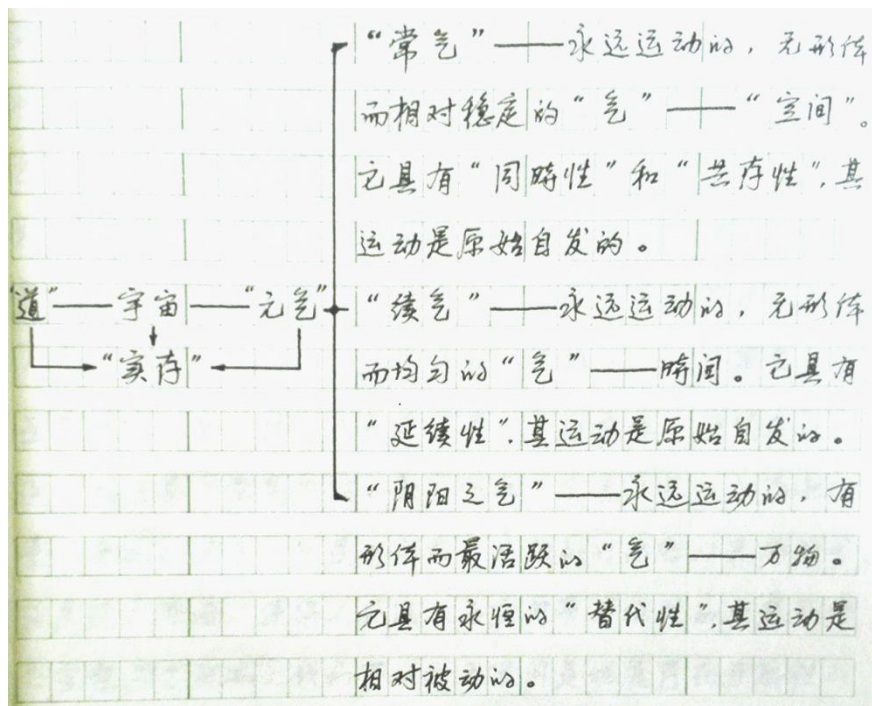 “常气”——永远运动的，无形体
而相对稳定的“气”——“空间”。
它具有“同时性”和“共存性”，其
运动是原始自发的。
“道”——宇宙——“元气” “续气”——永远运动的，无形体
“实存” 而均匀的“气”——时间。它具有
“延续性”，其运动是原始自发的。
“阴阳之气”——永远运动的，有
形体而最活跃的“气”——万物。
它具有永恒的“替代性”，其运动是
相对被动的。